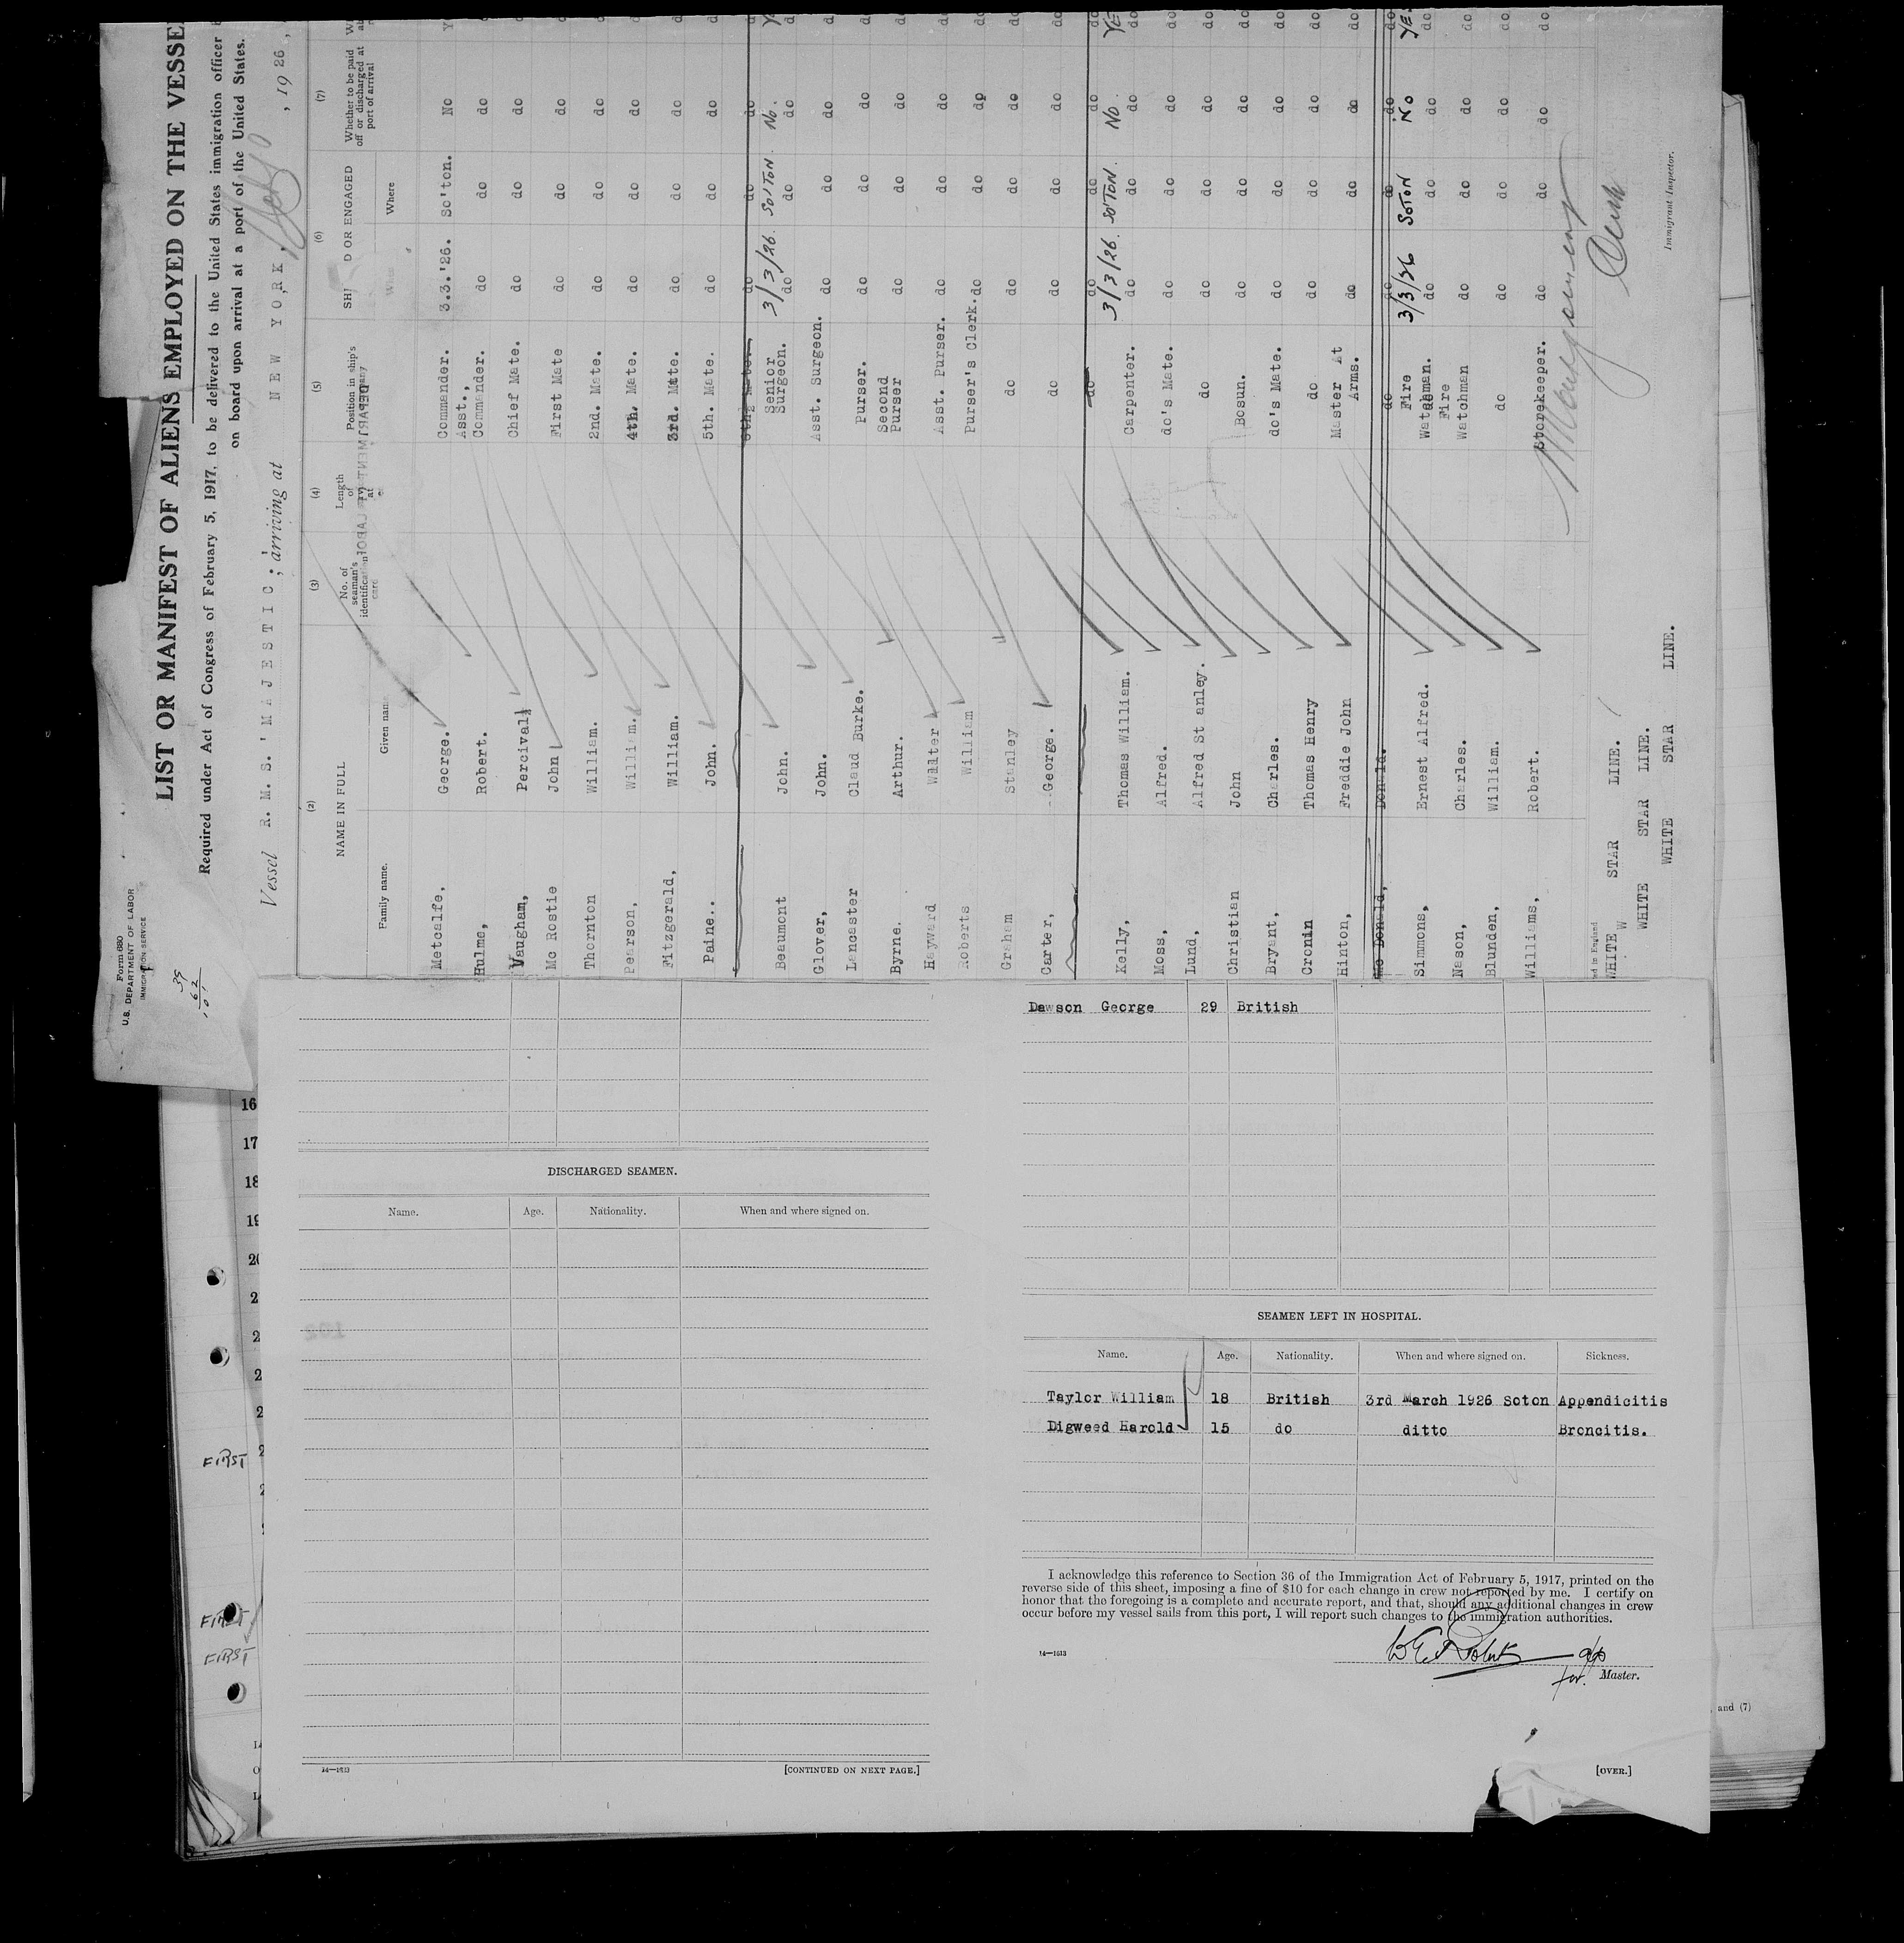 Form 680
U.S. DEPARTMENT OF LABOR
IMMIGRATION SERVICE
39
62
101
LIST OR MANIFEST OF ALIENS EMPLOYED ON THE VESSE
Required under Act of Congress of February 5, 1917, to be delivered to the United States immigration officer
on board upon arrival at a port of the United States.
Vessel R. M. S. 'MAJESTIC'; arriving at NEW YORK. , 1926,
(2) (3) (4) (5) (6) (7)
NAME IN FULL
Family name. Given nam
No. of seaman's identification card
Length of at
Position in ship's
SHI D OR ENGAGED
Where
Whether to be paid off or discharged at port of arrival
Metcalfe, George. Commander. 3.3.'26. So'ton. No Y
Hulme, Robert. Asst., Commander. do do do d
Vaugham, Percival Chief Mate. do do do d
Mc Rostie John First Mate do do do d
Thornton William. 2nd. Mate. do do do d
Pearson, William. 4th. Mate. do do do d
Fitzgerald, William. 3rd. Mate. do do do d
Paine.. John. 5th. Mate. do do do d
do do do
3/3/26. SO'TON. No.
Beaumont John. Senior Surgeon. do do do do
Glover, John. Asst. Surgeon. do do do d
Lancaster Claud Burke. Purser. do do do do
Byrne. Arthur. Second Purser do do do do
Hayward Walter Asst. Purser. do do do do
Roberts William Purser's Clerk. do do do do
Graham Stanley do do do do do
Carter, George. do do do do do
do do do do do
3/3/26. SO'TON. No. YE
Kelly, Thomas William. Carpenter. do do do do
Moss, Alfred. do's Mate. do do do do
Lund, Alfred St anley. do do do do do
Christian John Bosun. do do do do
Bryant, Charles. do's Mate. do do do do
Cronin Thomas Henry do do do do do
Hinton, Freddie John Master At Arms. do do do do
Mc Donald, Donald. do do do do do
3/3/26 SOTON No YE.
Simmons, Ernest Alfred. Fire Watchman. do do do do
Nason, Charles. Fire Watchman do do do do
Blunden, William. do do do do do
Williams, Robert. Storekeeper. do do do do
Immigrant Inspector.
ed in England
WHITE STAR LINE.
W
WHITE STAR LINE.
WHITE STAR LINE.
16
17
18
19
20
2
2
2
2
2
FIRST
2
FIRST
FIRST
DISCHARGED SEAMEN.
Name. Age. Nationality. When and where signed on.
14—1613
[CONTINUED ON NEXT PAGE.]
Dawson George 29 British
SEAMEN LEFT IN HOSPITAL.
Name. Age. Nationality. When and where signed on. Sickness.
Taylor William 18 British 3rd March 1926 Soton Appendicitis
Digweed Harold 15 do ditto Broncitis.
I acknowledge this reference to Section 36 of the Immigration Act of February 5, 1917, printed on the
reverse side of this sheet, imposing a fine of $10 for each change in crew not reported by me. I certify on
honor that the foregoing is a complete and accurate report, and that, should any additional changes in crew
occur before my vessel sails from this port, I will report such changes to the immigration authorities.
14—1613
for. Master.
[OVER.]
, and (7)